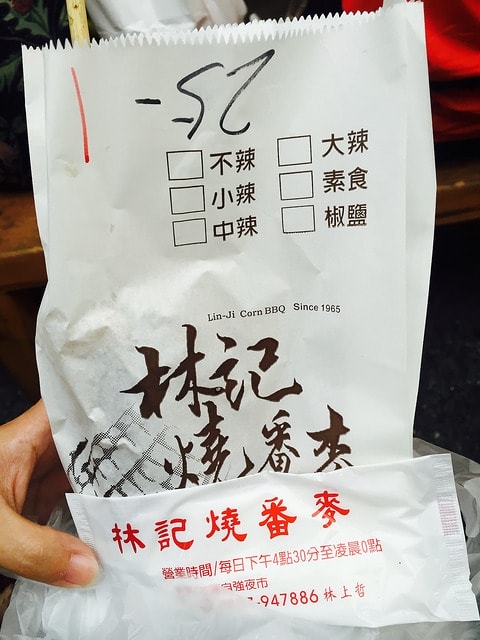 25-
不辣 大辣
小辣 素食
中辣 椒鹽
Lin-Ji Corn BBQ Since 1965
林記
燒番麥
林記燒番麥
營業時間/每日下午4點30分至凌晨0點
自強夜市
-947886 林上哲